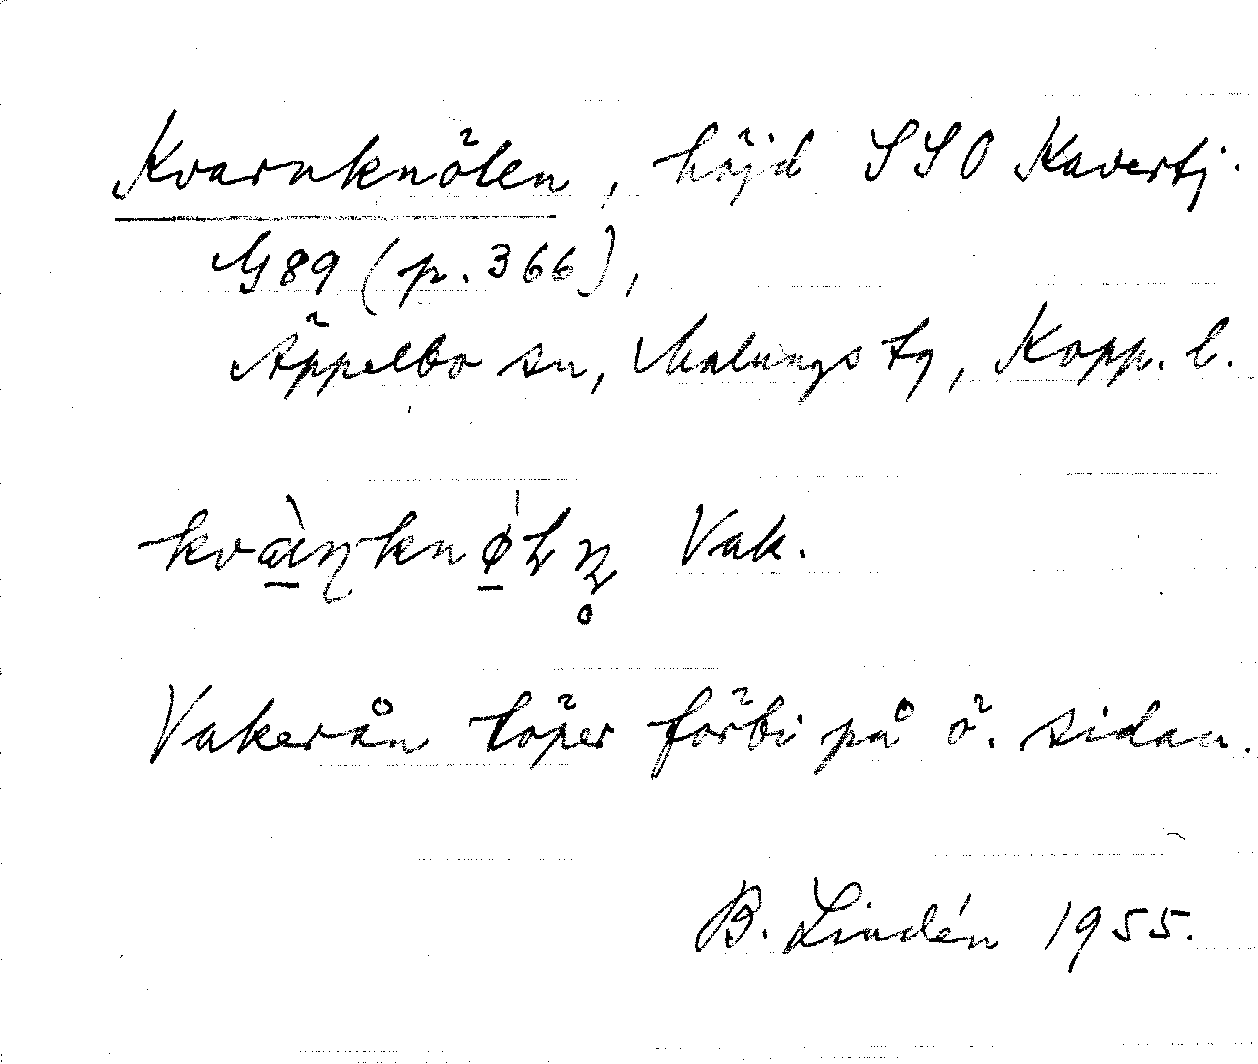 Kvarnknölen, höjd SSO Kavertj.
G89 (p. 366),
Äppelbo sn, Malungs tg, Kopp. l.
Vak.
Vakerån löper förbi på ö. sidan.
B. Lindén 1955.